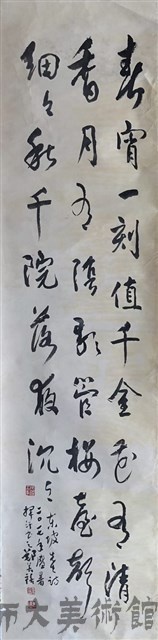 春宵一刻值千金花有清
香月有陰歌管樓臺聲
細細秋千院落夜沉沉
東坡春詩
二〇一七年
師大美術館